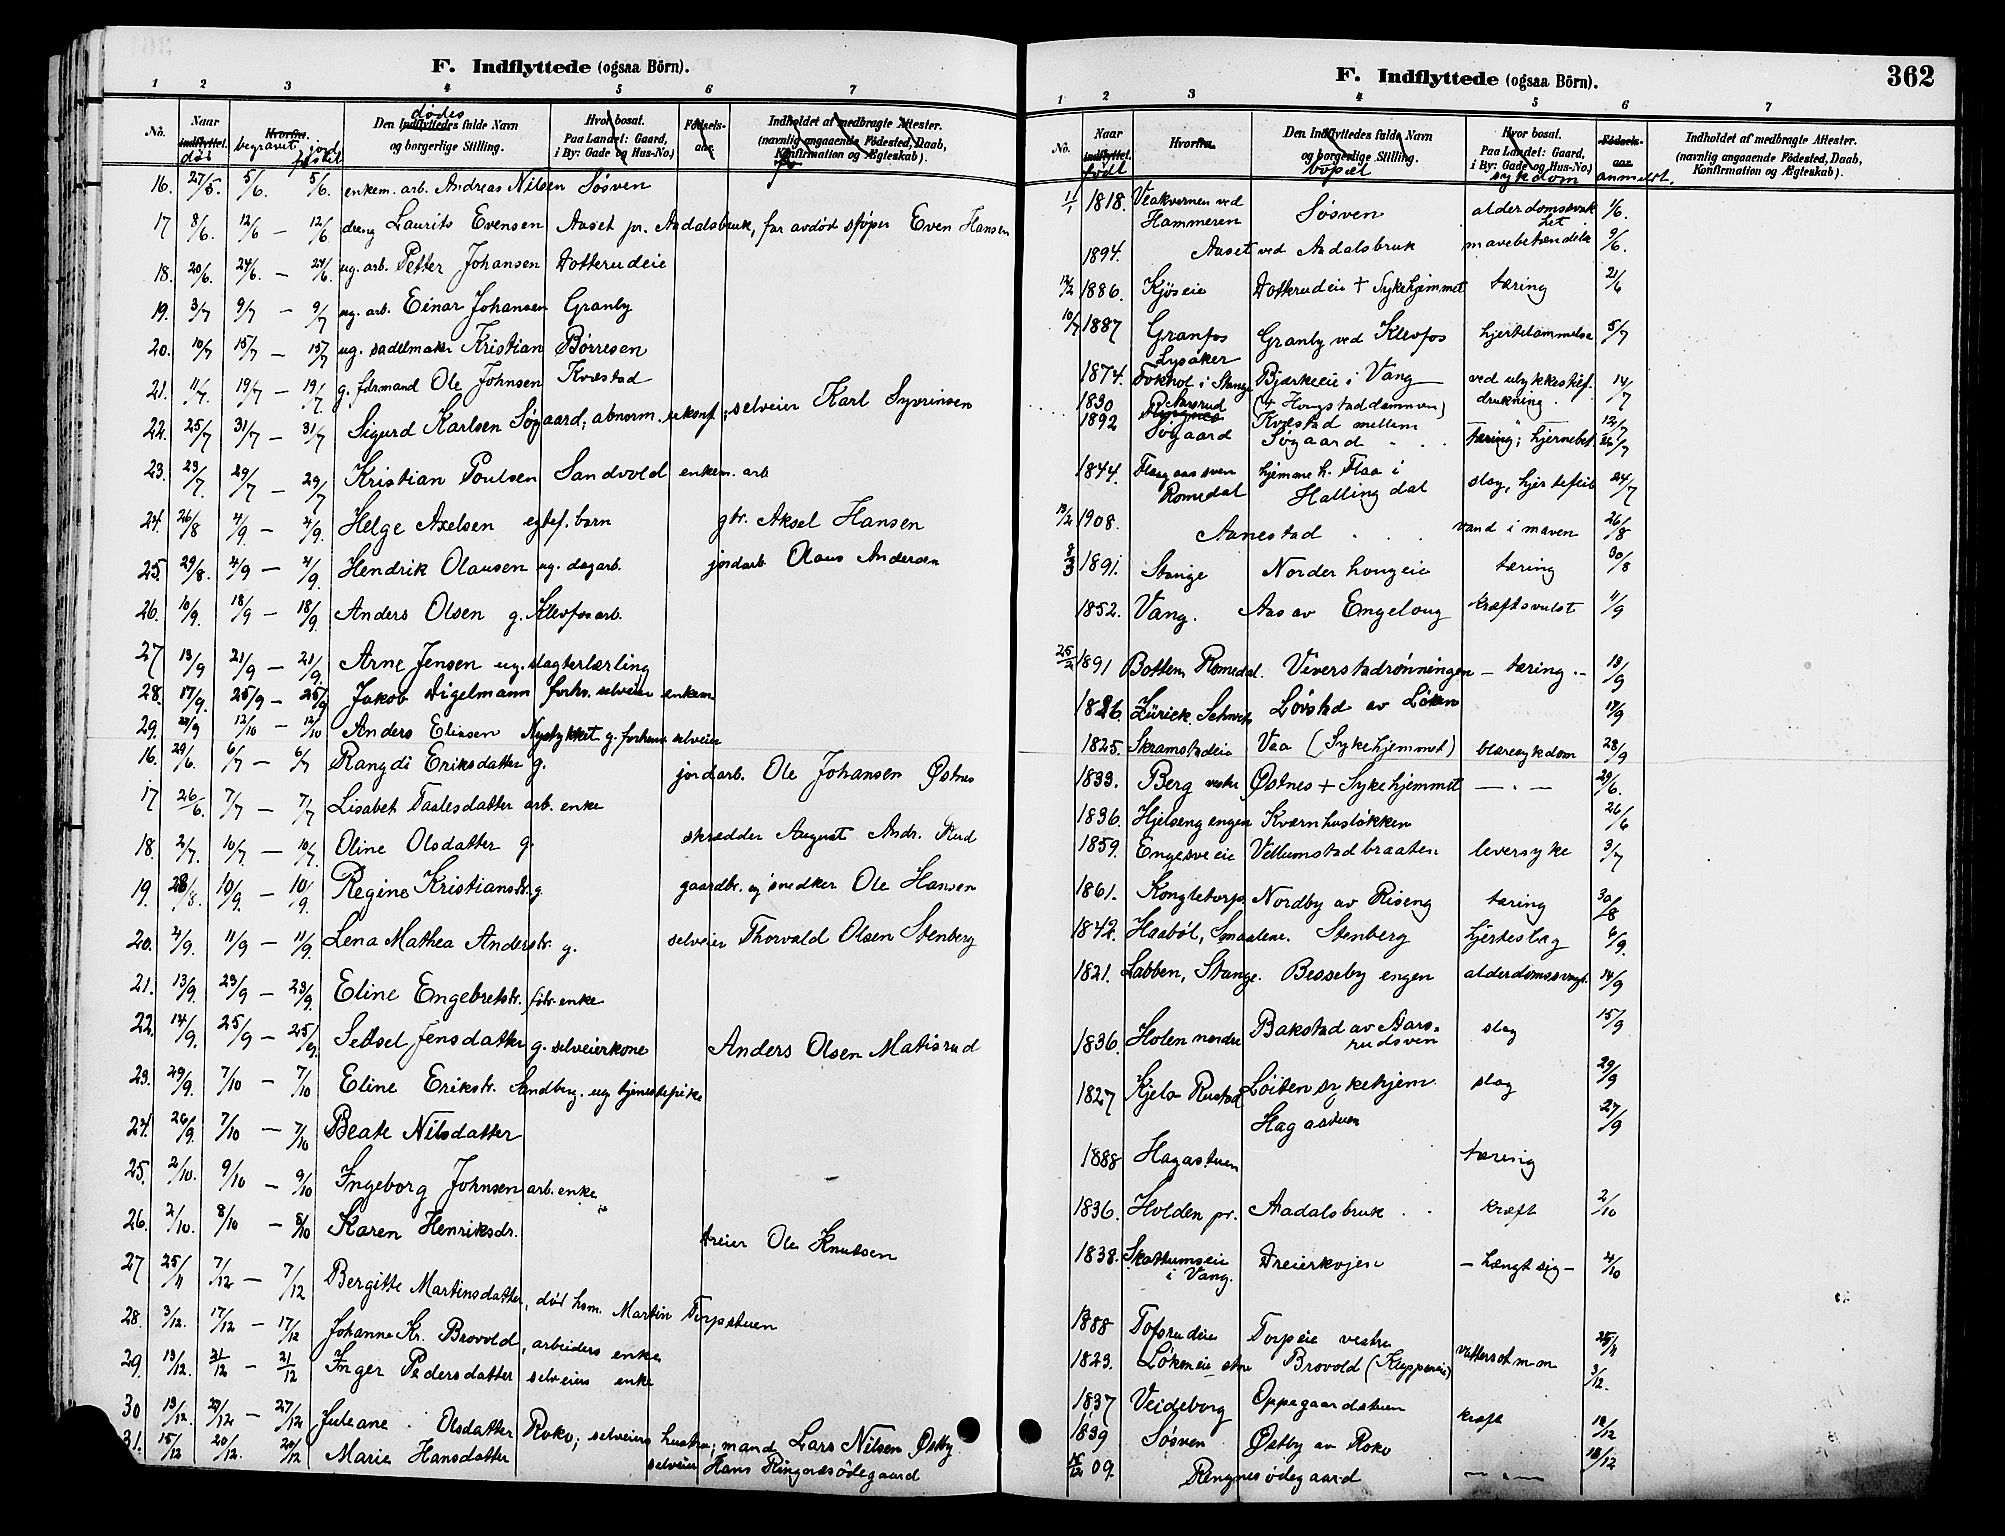 F. Indflyttede (ogsaa Börn).
1 2 3 4 5 6 7
No. Naar indflyttet. død Hvorfra. begravet jord fæstet Den Indflyttedes dødes fulde Navn og borgerlige Stilling. Hvor bosat. Paa Landet: Gaard, i By: Gade og Hus-No.) Fødsels-aar. Indholdet af medbragte Attester. (navnlig angaaende Födested, Daab, Konfirmation og Ægteskab).
16. 27/5. 5/6. 5/6. enkem. arb. Andreas Nilsen Søsven
17 8/6. 12/6 — 12/6 dreng Laurits Evensen Aaset pr. Aadalsbruk, far avdød støper Even Hansen
18. 20/6. 24/6. — 24/6. ug. arb. Petter Johansen Dotterudeie
19. 3/7 9/7 — 9/7 ug. arb. Einar Johansen Granby
20. 10/7 15/7 — 15/7 ug. sadelmaker Kristian Børresen
21. 11/7. 19/7 — 19/7 g. formand Ole Johnsen Kvæstad
22. 25/7 31/7 — 31/7 Sigurd Karlsen Søgaard; abnorm. ukonf; selveier Karl Syvrinsen
23. 23/7. 29/7 — 29/7 Kristian Poulsen Sandvold enkem. arb
24. 26/8 4/9 — 4/9. Helge Axelsen egtef. barn gbr. Aksel Hansen
25. 29/8. 4/9 — 4/9. Hendrik Olausen ug. dagarb. jordarb Olaus Andersen
26. 10/9. 18/9 — 18/9. Anders Olsen g. Klevfosarb.
27 13/9 21/9 — 21/9. Arne Jensen ug. slagterlærling
28. 17/9. 25/9 — 25/9 Jakob Digelmann forhv. selveier enkem
29. 29/9 12/10 — 12/10 Anders Eliasen Nystykket g. forhenv selveier
16. 29/6. 6/7 — 6/7 Rangdi Eriksdatter g. jordarb. Ole Johansen Østnes
17 26/6 7/7 — 7/7 Lisabet Taalesdatter arb. enke
18. 2/7. 10/7 — 10/7. Oline Olsdatter g. skrædder August Andr. Rud
19. 28/8. 10/9. — 10/9. Regine Kristiansdr. g gaardbr. og snedker Ole Hansen
20. 4/9. 11/9 — 11/9. Lena Mathea Anderstr. g. selveier Thorvald Olsen Stenberg
21. 13/9. 23/9 — 23/9. Eline Engebretstr. fstr. enke
22. 14/9. 25/9 — 25/9. Sedsel Jensdatter g. selveierkone Anders Olsen Matisrud
23. 29/9. 7/10 — 7/10 Eline Erikstr. Sandberg. ug tjenestepike
24. 26/9. 7/10 — 7/10 Beate Nilsdatter
25. 2/10. 9/10 — 9/10 Ingeborg Johnsen arb. enke
26. 2/10. 8/10 — 8/10 Karen Henriksdr. dreier Ole Knutsen
27 25/11 7/12 — 7/12 Bergitte Martinsdatter, død hsm. Martin Torpstuen
28. 3/12. 17/12 — 17/12 Johanne Kr. Brovold, arbeiders enke
29. 13/12. 21/12 — 21/12 Inger Pedersdatter selveiers enke
30 19/12. 27/12 — 27/12 Juleane Olsdatter Roko; selveiers hustru; mand Lars Nilsen Østby
31. 15/12 20/12. 20/12 Marie Hansdatter selveier Hans Ringnesødegaard
F. Indflyttede (ogsaa Börn).
362
1 2 3 4 5 6 7
No. Naar indflyttet. født Hvorfra. Den Indflyttedes fulde Navn og borgerlige Stilling. bopæl Hvor bosat. Paa Landet: Gaard, i By: Gade og Hus-No.) sykdom Födsels-aar anmeldt. Indholdet af medbragte Attester. (navnlig angaaende Födested, Daab, Konfirmation og Ægteskab).
1/1 1818. Veakvernen ved Hammeren Søsven alderdomssvakhet 1/6.
1894. Aaset ved Aadalsbruk mavebetændelse 9/6.
12/2 1886. Kjøseie Dotterudeie + Sykehjemmet tæring 21/6
10/7 1887 Granfos Granby ved Klevfos hjertelammelse 5/7
Lysaker
1874. Fokhol i Stange Bjærkeeie i Vang ved ulykkestilf. 14/7
1830 Aarsrud (+ Hongstaddammen) drukning.
Kvæstad mellem 12/7
1892 Søgaard Søgaard tæring; hjernebet 26/7
1844. hjemme h. Flaa i slag, hjertefeil 24/7
Romedal Halling dal
19/2 1908. Aanestad vand i maven 26/8
8/3 1891. Stange Norder hougeie tæring 30/8
1852. Vang. Aas av Engeloug kræftsvulst 11/9
25/2 1891 Botten Romedal. Viverstadrønningen — tæring — 13/9
1826 Zürick. Schweits Løvstad av Løken 17/9
1825. Skramstadeie Vaa (Sykehjemmet) blæresykdom 28/9
1833. Berg vestre Østnes + Sykehjemmet — " — 29/6.
1836. Hjelseng engen Kværnhusløkken 26/6
1859. Engesveeie Vellumstadbraaten leversyke 3/7
1861. Kongletorps Nordby av Riseng tæring 30/8
1842. Haabøl, Smaalene. Stenberg hjerteslag 6/9.
1821. Labben, Stange. Besseby engen alderdomssvagh. 14/9
1836. Holen nordre Bakstad av Aarsrudsven slag 15/9
1827 Kjelo Rustad Løiten sykehjem slag 29/9
Hagastuen 27/9
1888 Hagastuen tæring
1836. Holden pr. Aadalsbruk kræft 2/10
1838. Skattumseie i Vang. Dreierkojen — hængt sig — 4/10
1888 Tofsrudeie Torpeie vestre 25/11
1823. Løkeneie Brovold (Kleppeneie) 3/12.
1837 Veideborg Oppegaardstuen kræft
1839 Søsven Østby av Roko 18/12
15/12 09. Ringnesødegaard — " — 18/12